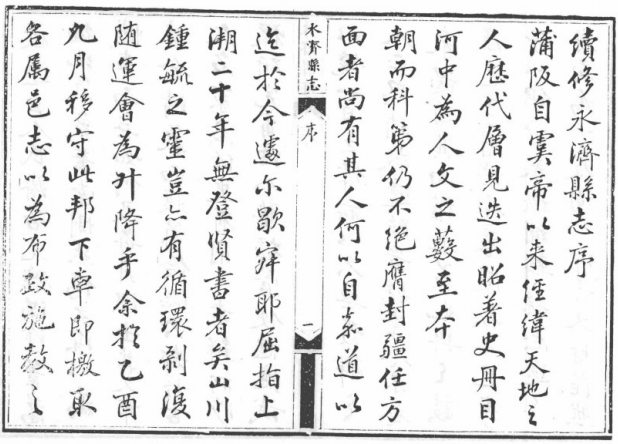 續修永濟縣志序
蒲阪自虞帝以来經緯天地之
人歷代層見迭出昭著史冊目
河中為人文之藪至本
朝而科第仍不絕膺封疆任方
面者尚有其人何以自嘉道以
永濟縣志
序
一
迄於今遽尔歇寂耶屈指上
溯二十年無登賢書者矣山川
鍾毓之靈豈亦有循環剥復
随運會為升降乎余於乙酉
九月移守此邦下車即檄取
各属邑志以為布政施教之